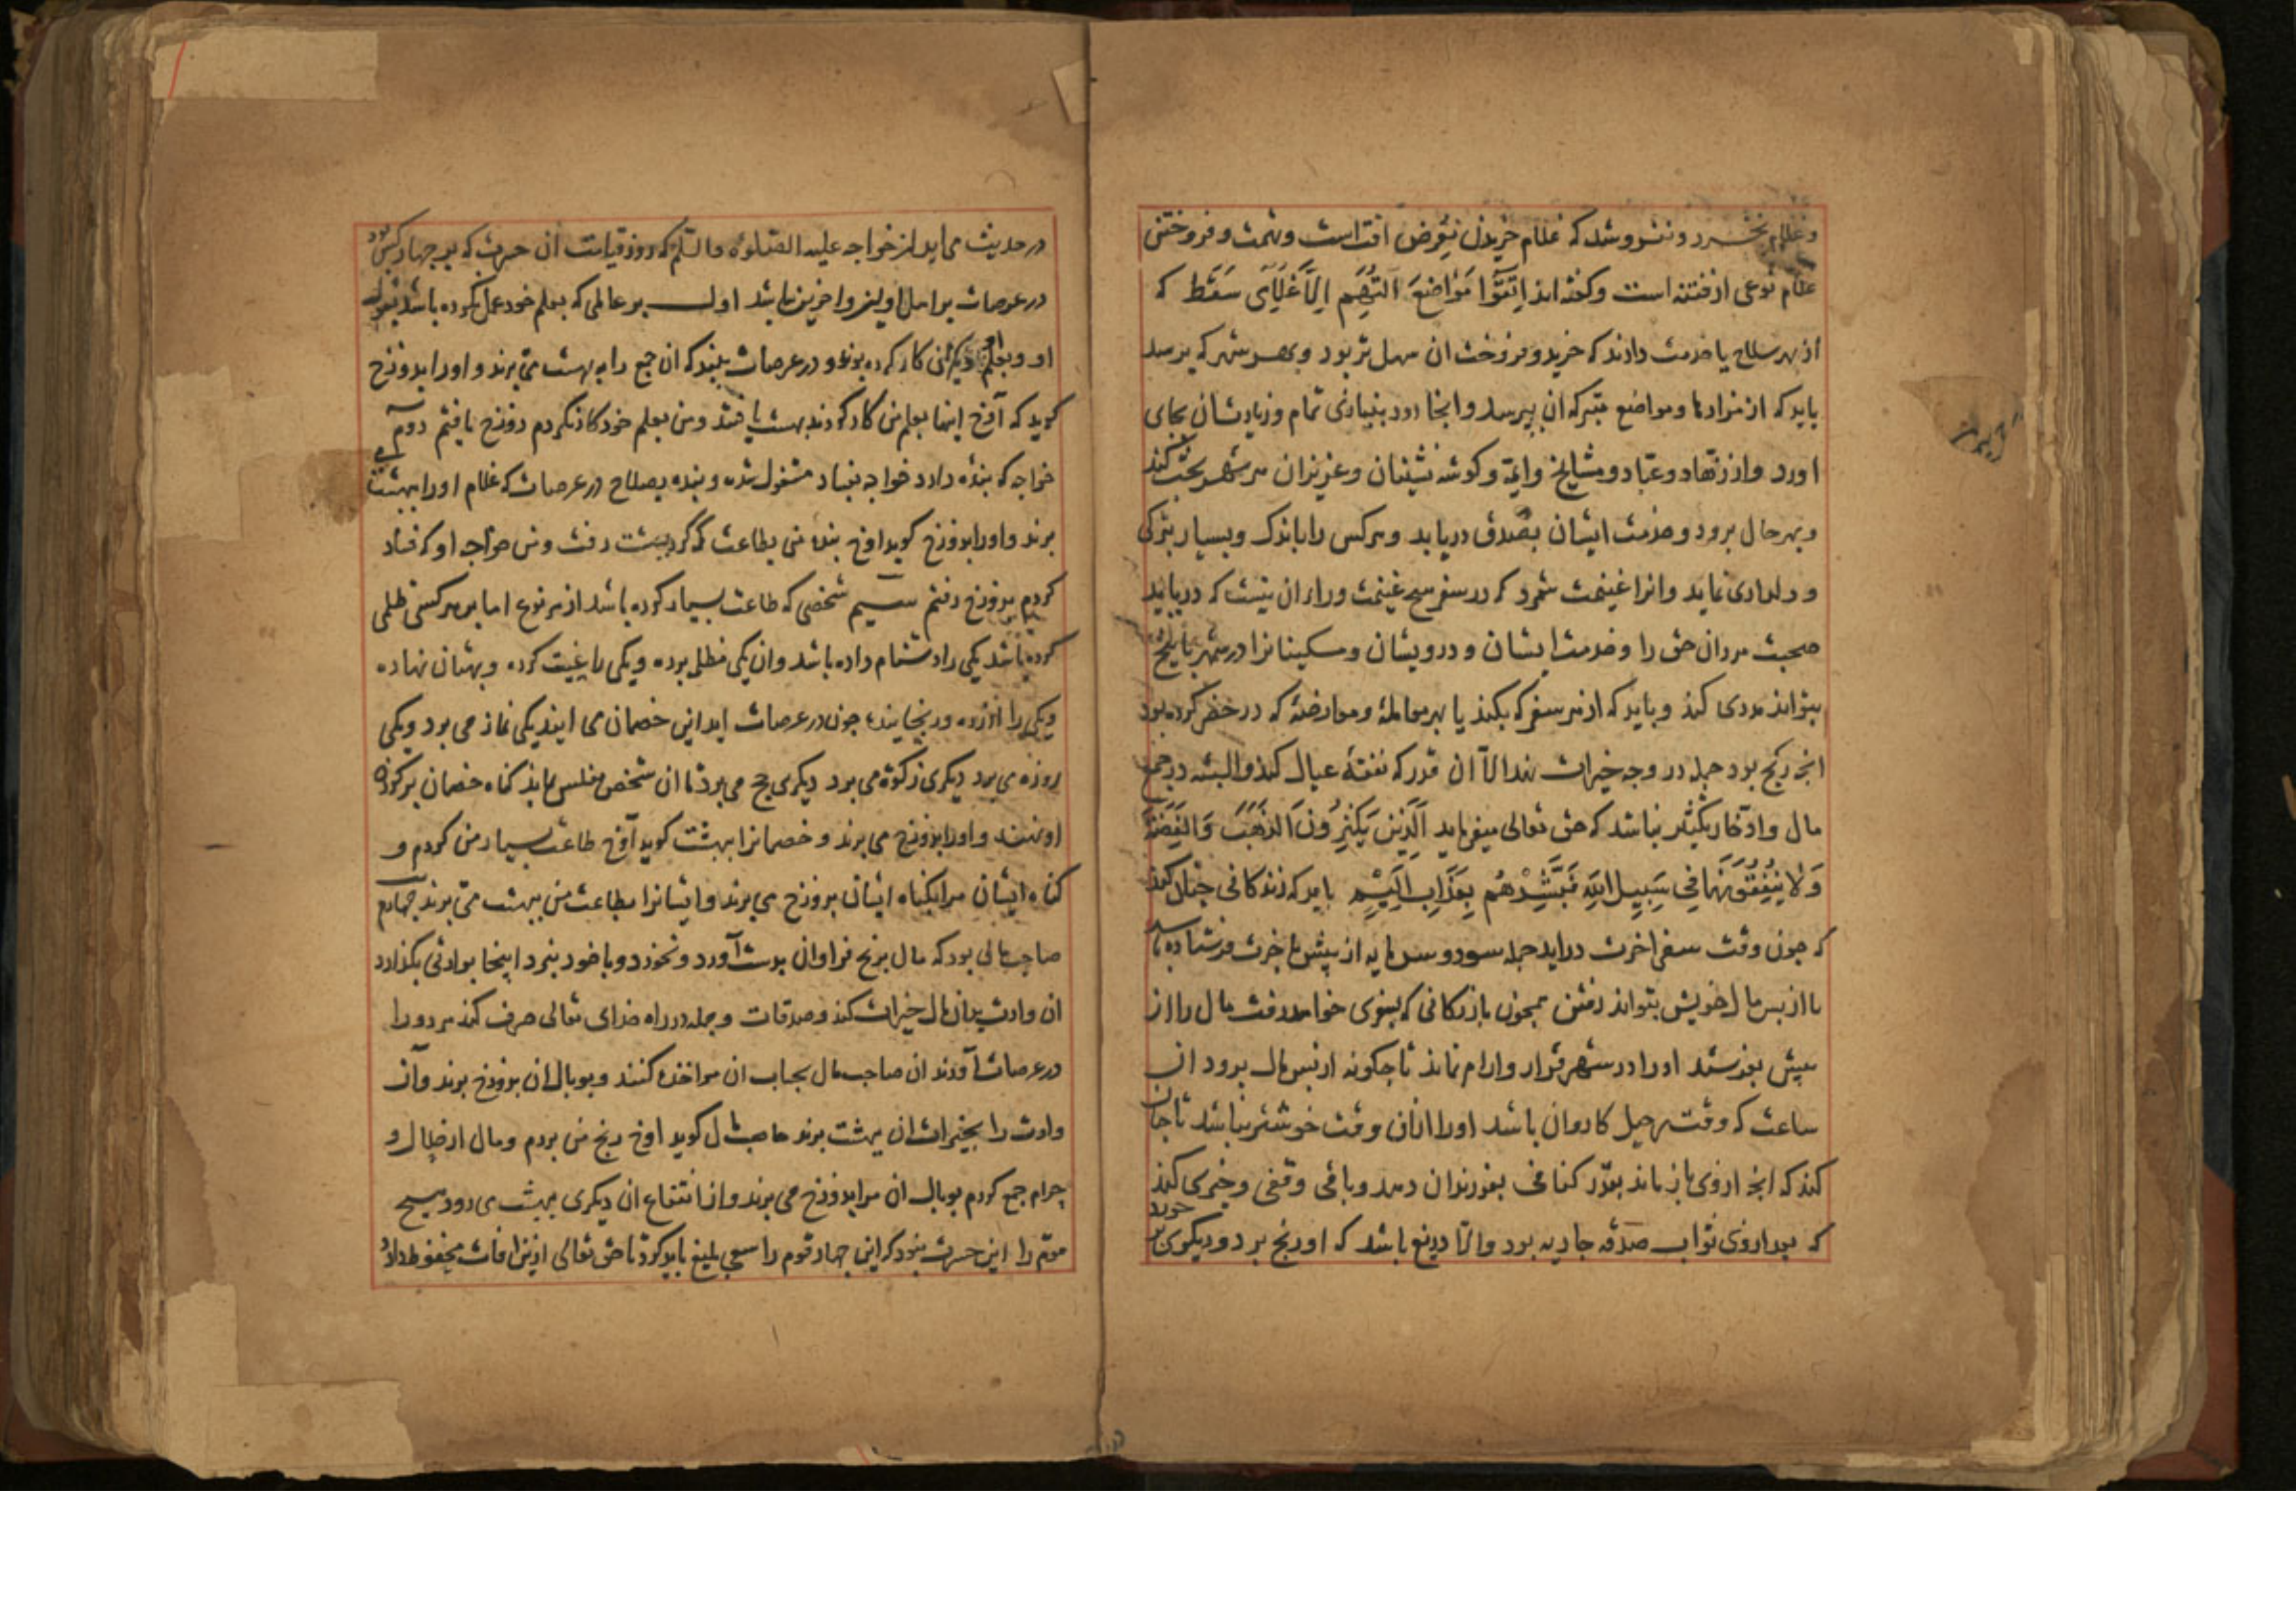 و غلام نخرد و نفروشد که غلام خریدن تعرض افت است و تهمت و فروختن
غلام نوعی از فتنه است و کفته اند اِتَّقُوا مَوَاضِعَ التُّهَمِ اِلَّا غلامی سَقَط که
از بهر سلاح یا خدمت دارند که خرید و فروخت ان سهل تر بود و بهر شهر که برسد
باید که از مزارها و مواضع متبرکه ان بپرسد و انجا رود بنیازی تمام و زیارتشان بجای
اورد و از زهّاد و عبّاد و مشایخ و ایمّه و کوشه نشینان و عزیزان هر شهر بحث کند
و بهر حال برود و خدمت ایشان بصدق دریابد و هر کس را باندک و بسیار تبرکی
و دلداری نماید و انرا غنیمت شمرد که در سفر هیچ غنیمت وراء ان نیست که دریابد
صحبت مردان حق را و خدمت ایشان و درویشان و مسکینانرا در شهر بانچ
بتواند مددی کند و باید که از هر سفر که بکند یا بهر معامله و معارضهٔ که در حضر کرده بود
انچ ربح بود جمله در وجه خیرات نهد الّا ان قدر که نفقهٔ عیال کند و البته در جمع
مال و ادّخار بکثیر نباشد که حق تعالی میفرماید اَلَّذِینَ یَکْنِزُونَ الذَّهَبَ وَالْفِضَّةَ
وَلَا یُنْفِقُونَهَا فِی سَبِیلِ اللهِ فَبَشِّرْهُم بِعَذَابٍ اَلِیمٍ باید که زندکانی چنان کند
که چون وقت سفر اخرت دراید جمله سود و سرمایه از پیش باخرت فرستاده باشد
تا از پس مال خویش بتواند رفتن همچون بازرکانی که بسفری خواهد رفت مال را از
پیش بفرستد او را در شهر قرار و ارام نماند تا چکونه از پس مال برود ان
ساعت که وقت رحیل کاروان باشد او را ازان وقت خوشتر نباشد تا جان
کند که انچ ازوی باز ماند بقدر کفاف بفرزندان دهد و باقی وقفی و خیری کند
که بعد ازوی ثواب صدقه جاریه بود و الّا دریغ باشد که او رنج برد و دیکری بر خورد
در حدیث می اید از خواجه علیه الصلوة والسّلم که روز قیامت ان حسرت که بر چهار کس بود
در عرصات بر اهل اولین و اخرین نباشد اول بر عالمی که بعلم خود عمل نکرده باشد بقول
او و بعلم او دیکرانی کار کرده بوند و در عرصات بیند که ان جمع را به بهشت می برند و او را بدوزخ
کوید که آوخ اینها بعلم من کار کردند بهشت یافتند و من بعلم خود کار نکردم دوزخ یافتم دوم
خواجه که بنده دارد خواجه بفساد مشغول شده و بنده بصلاح در عرصات که غلام او را ببهشت می
برند و او را بدوزخ کوید اوخ بندهٔ من بطاعت که کرد ببهشت رفت و من خواجه او که فساد
کردم بدوزخ رفتم سیم شخصی که طاعت بسیار کرده باشد از هر نوع اما بر هر کسی ظلمی
کرده باشد یکی را دشنام داده باشد و ان یکی مظلمی برده و یکی را غیبت کرده و بهتان نهاده
و یکی را ازرده و رنجانیده چون در عرصات اید این خصمان می ایند یکی نماز می برد و یکی
روزه می برد دیکری زکوة می برد دیکری حج می برد تا ان شخص مفلس بماند کناه خصمان بر کردن
او نهند و او را بدوزخ می برند و خصمانرا ببهشت کوید آوخ طاعت بسیار من کردم و
کناه ایشان مرا بکناه ایشان بدوزخ می برند و ایشانرا بطاعت من ببهشت می برند چهارم
صاحب مالی بود که مال برنج فراوان بدست آورد و نخورد و با خود نبرد اینجا بوارثی بکذارد
ان وارث بدان مال خیرات کند و صدقات و جمله در راه خدای تعالی صرف کند هر دو را
در عرصات آورند ان صاحب مال بحساب ان مواخذه کنند و بوبال ان بدوزخ برند و آن
وارث را بخیرات ان ببهشت برند صاحب مال کوید اوخ رنج من بردم و مال از حلال و
حرام جمع کردم بوبال ان مرا بدوزخ می برند و از انتفاع ان دیکری ببهشت می رود هیچ
قوم را این حسرت نبود که این چهار قوم را سعی بلیغ باید کرد تا حق تعالی ازین افات محفوظ دارد